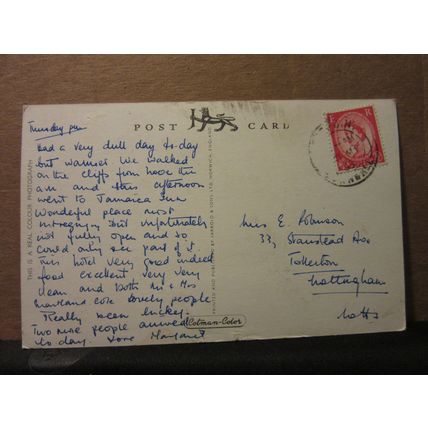 POST CARD
Tuesday pm
Had a very dull day to-day
but warmer. We walked
on the cliffs from here this
a.m and this afternoon
went to Jamaica Inn
Wonderful place most
intreging but unfortunately
not fully open and so
could only see part of it.
This hotel very good indeed
food excellent, very very
clean and both Mr & Mrs
lovely people
Really been lucky.
Two more people arrived
to day. Love Margaret
THIS IS A REAL COLOUR PHOTOGRAPH
PRINTED AND PUBLISHED BY JARROLD & SONS LTD. NORWICH, ENGLAND
Cotman-Color
Miss E. Robinson
33, Stanstead Ave
Tollerton
Nottingham
Notts